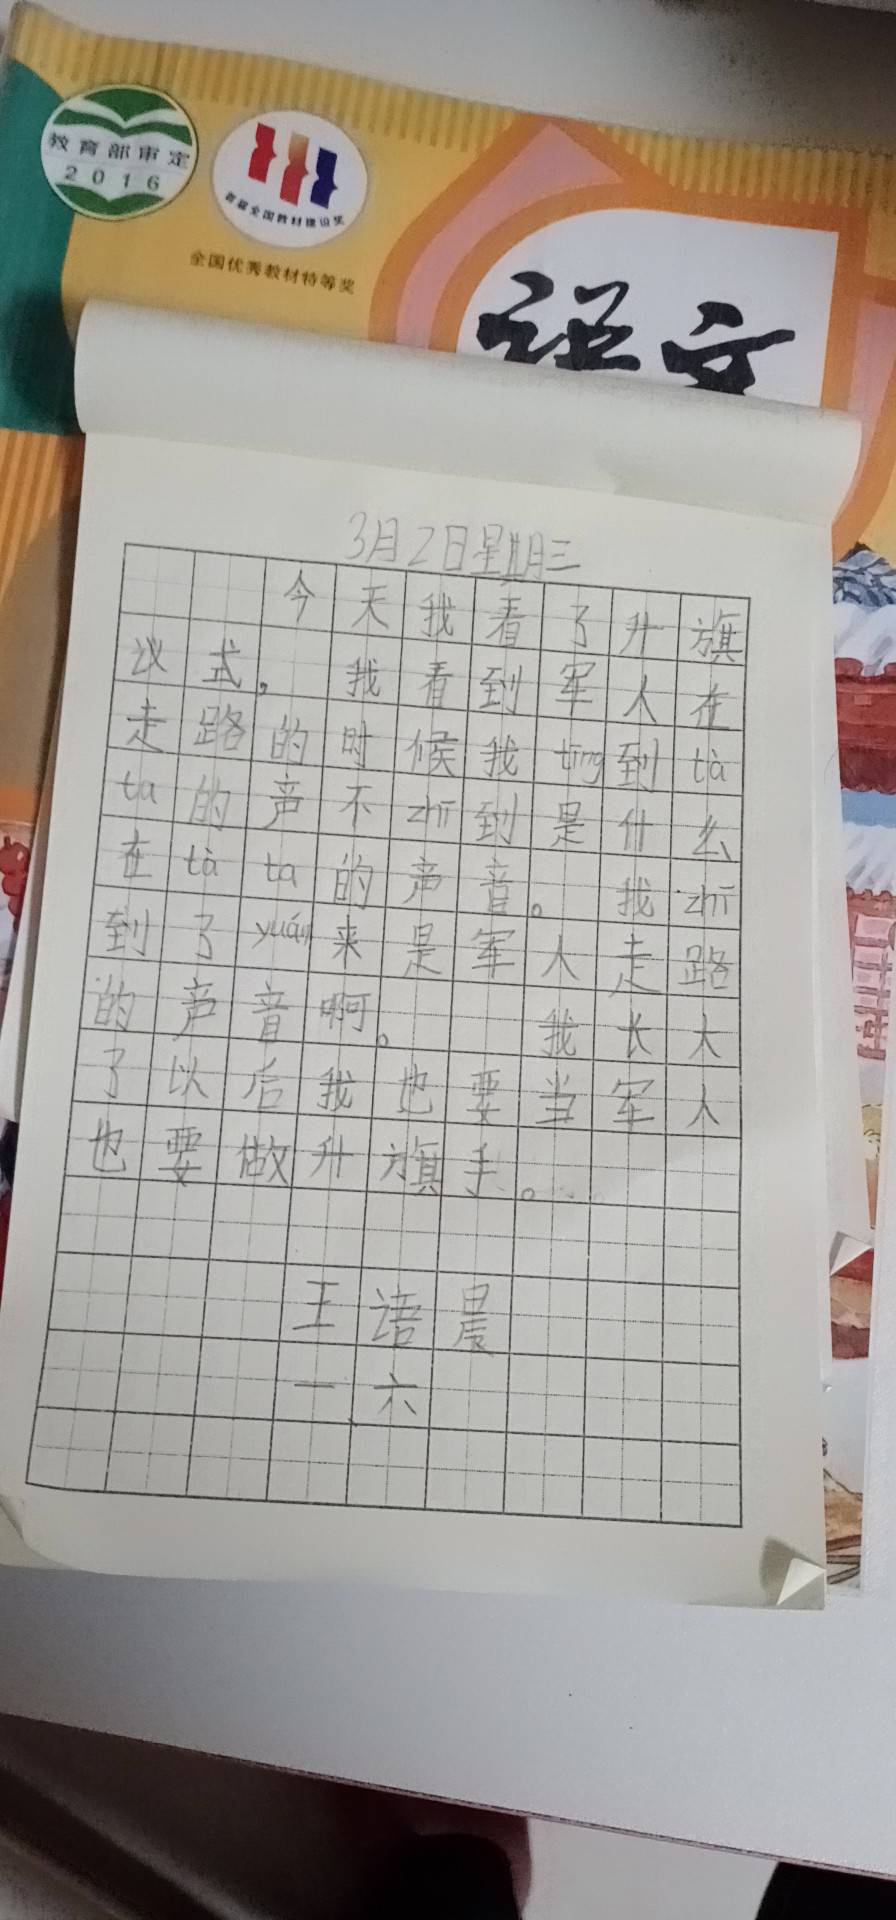 教育部审定
2016
首届全国教材建设奖
全国优秀教材特等奖
语文
3月2日星期三
今天我看了升旗
议式，我看到军人在
走路的时候我tīng到tà
ta的声不zhī到是什么
在tà ta的声音。我zhī
到了yuán来是军人走路
的声音啊。我长大
了以后我也要当军人
也要做升旗手。
王语晨
一、六